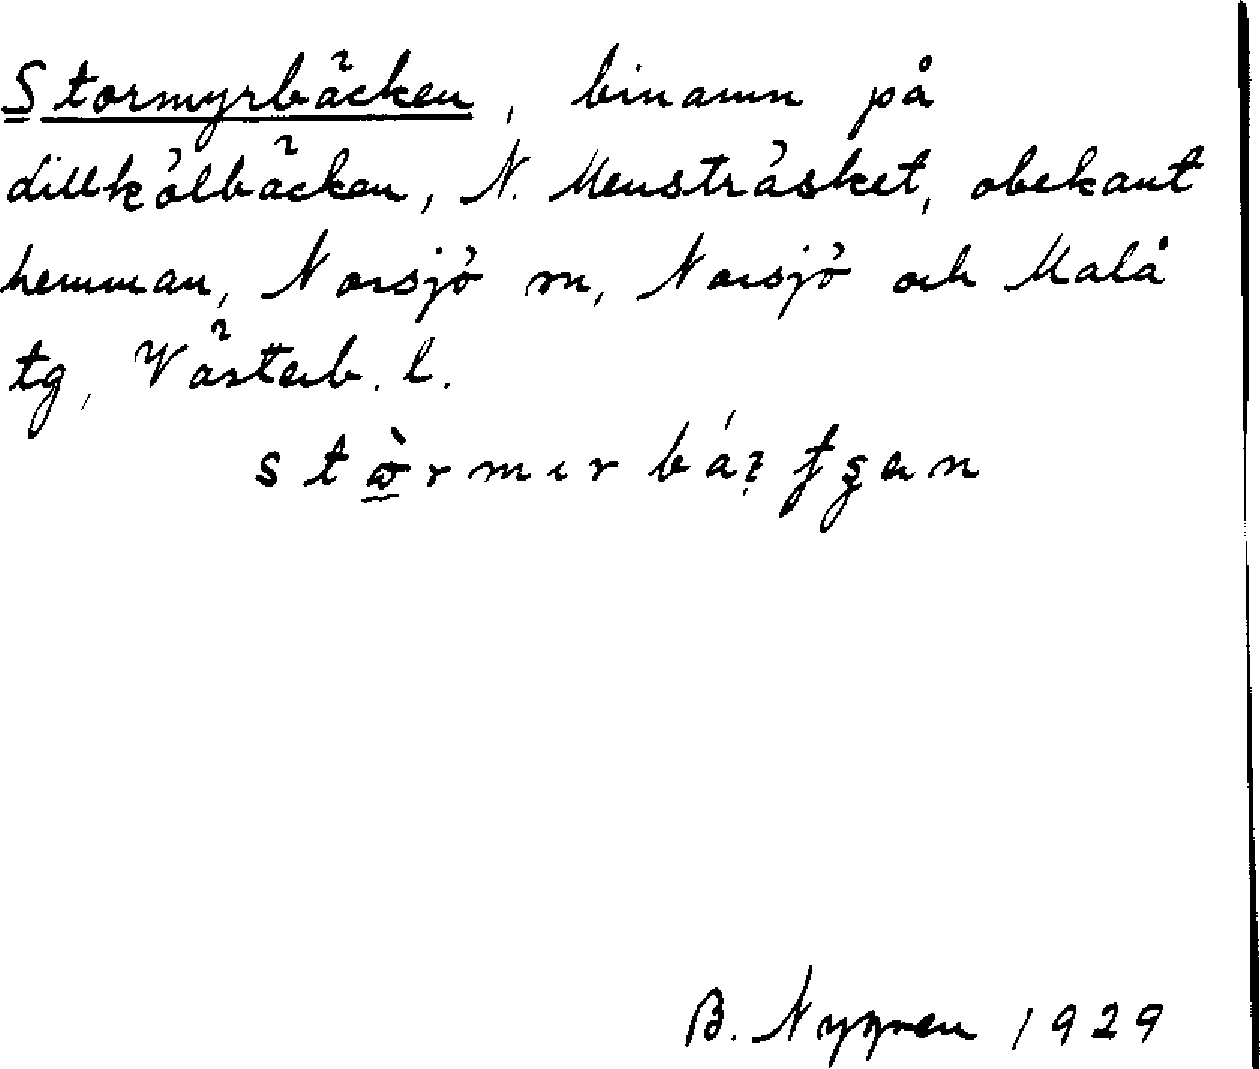 Stormyrbäcken, binamn på
Lillkölbäcken, N. Mensträsket, obekant
hemman, Norsjö sn, Norsjö och Malå
tg, Västerb. l.
B. Nygren 1929